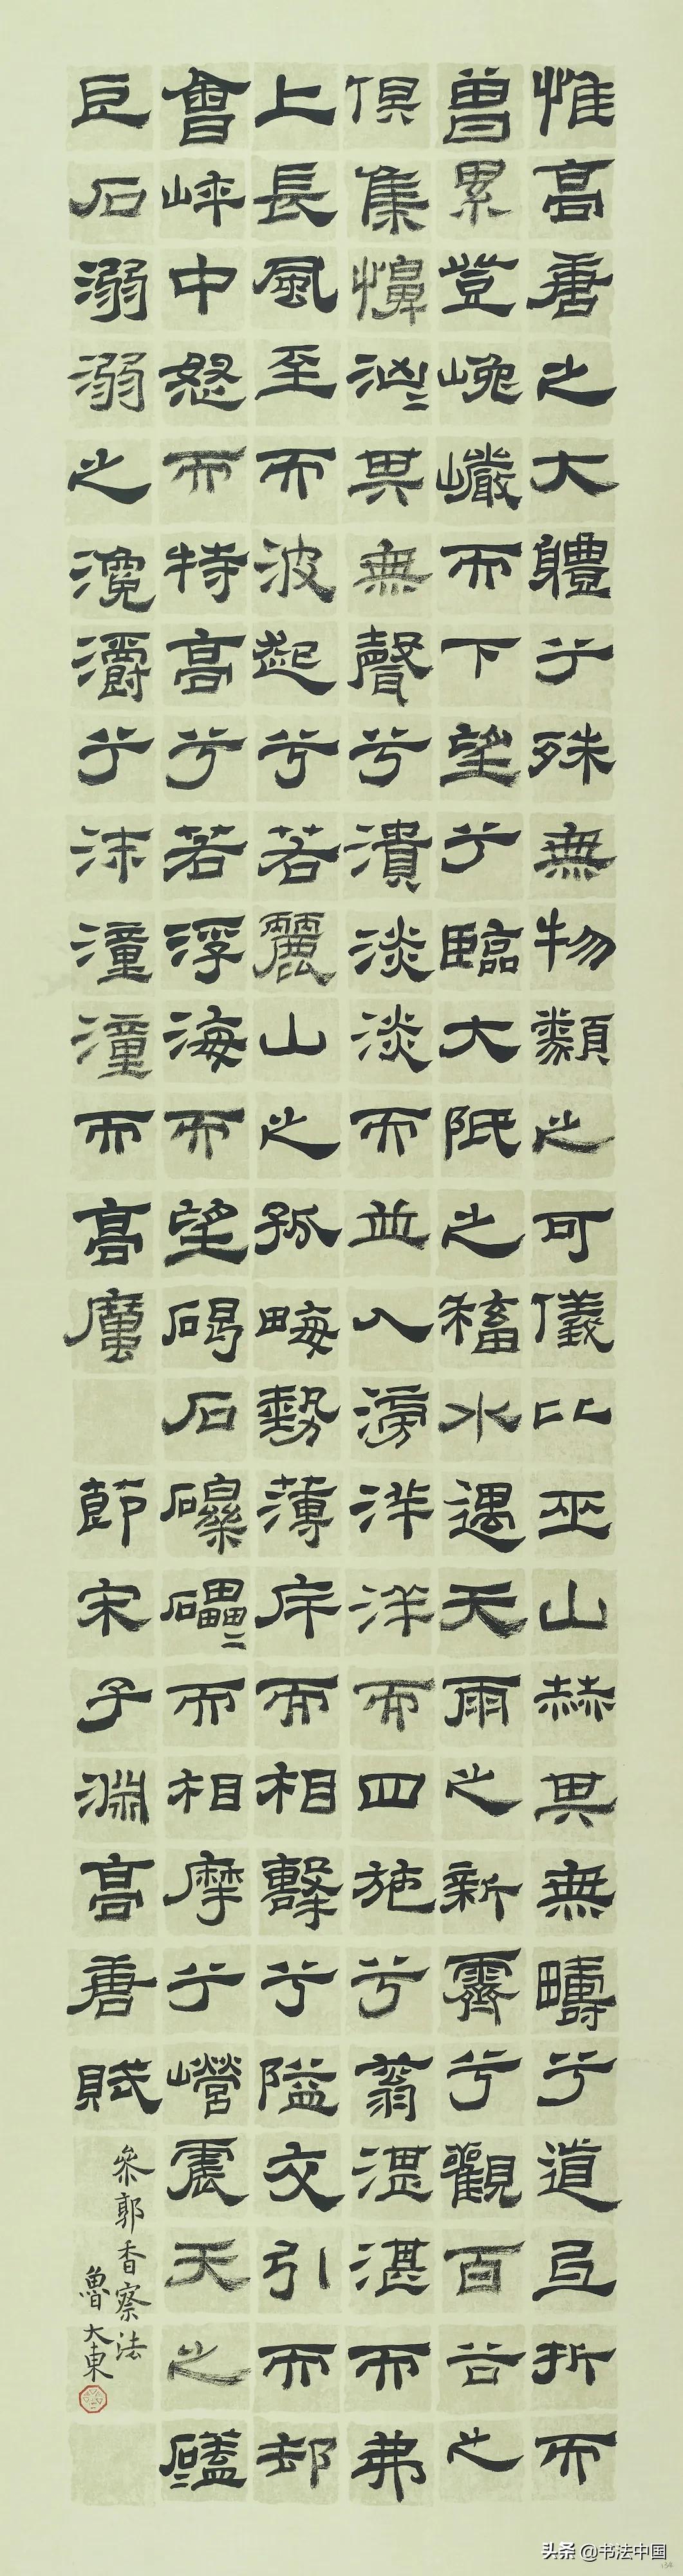 惟高唐之大體兮殊無物類之可儀比巫山赫其無疇兮道互折而
曾累登巉巖而下望兮臨大阺之稸水遇天雨之新霽兮觀百谷之
俱集濞洶〻其無聲兮潰淡淡而並入滂洋洋而四施兮蓊湛湛而弗
上長風至而波起兮若麗山之孤畮勢薄岸而相擊兮隘交引而卻
會崪中怒而特高兮若浮海而望碣石礫磥〻而相摩兮巆震天之磕〻
巨石溺溺之瀺灂兮沫潼潼而高厲 節宋子淵高唐賦
參郭香察法
魯大東
头条 @书法中国